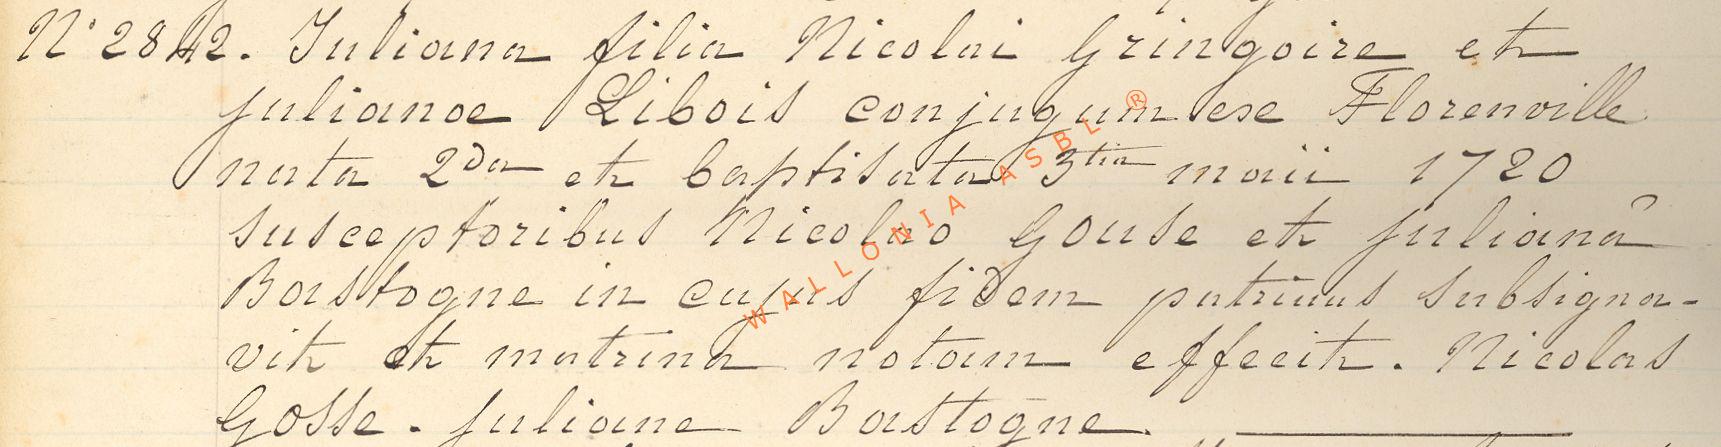 N° 2842. Juliana filia Nicolai Gringoire et
julianæ Libois conjugum ex Florenville
nata 2da et baptisata 3tia maii 1720
susceptoribus Nicolaô Gouse et julianâ
Bastogne in cujus fidem patrinus subsigna-
vit et matrina notam effecit. Nicolas
Gosse. juliane Bastogne.
WALLONIA ASBL ®